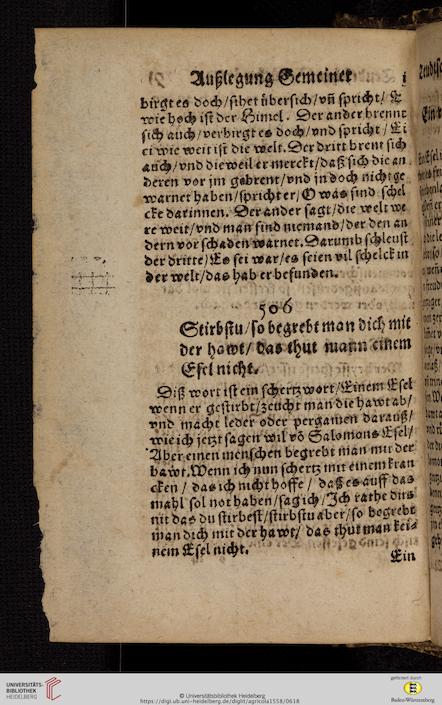 Außlegung Gemeiner
birgt es doch/sihet übersich/vñ spricht/ E
wie hoch ist der Himel. Der ander brennt
sich auch/verbirgt es doch/vnd spricht/ Ei
ei wie weit ist die welt. Der dritt brent sich
auch/vnd dieweil er merckt/daß sich die an
deren vor jm gebrent/vnd jn doch nicht ge
warnet haben/spricht er/O was sind schel
cke darinnen. Der ander sagt/die welt we
re weit/vnd man find niemand/der den an
dern vor schaden warnet. Darumb schleust
der dritte/Es sei war/es seien vil schelck in
der welt/das hab er befunden.
506
Stirbstu/so begrebt man dich mit
der hawt/ das thut mann einem
Esel nicht.
Diß wort ist ein schertzwort/Einem Esel
wenn er gestirbt/zeucht man die hawt ab/
vnd macht leder oder pergamen darauß/
wie ich jetzt sagen wil võ Salomons Esel/
Aber einen menschen begrebt man mit der
hawt. Wenn ich nun schertz mit einem kran
cken / das ich nicht hoffe / daß es auff das
mahl sol not haben/sag ich/Ich rathe dirs
nit das du stirbest/stirbstu aber/so begrebt
man dich mit der hawt/ das thut man kei=
nem Esel nicht.
Ein
UNIVERSITÄTS-
BIBLIOTHEK
HEIDELBERG
© Universitätsbibliothek Heidelberg
https://digi.ub.uni-heidelberg.de/diglit/agricola1558/0618
gefördert durch
Baden-Württemberg